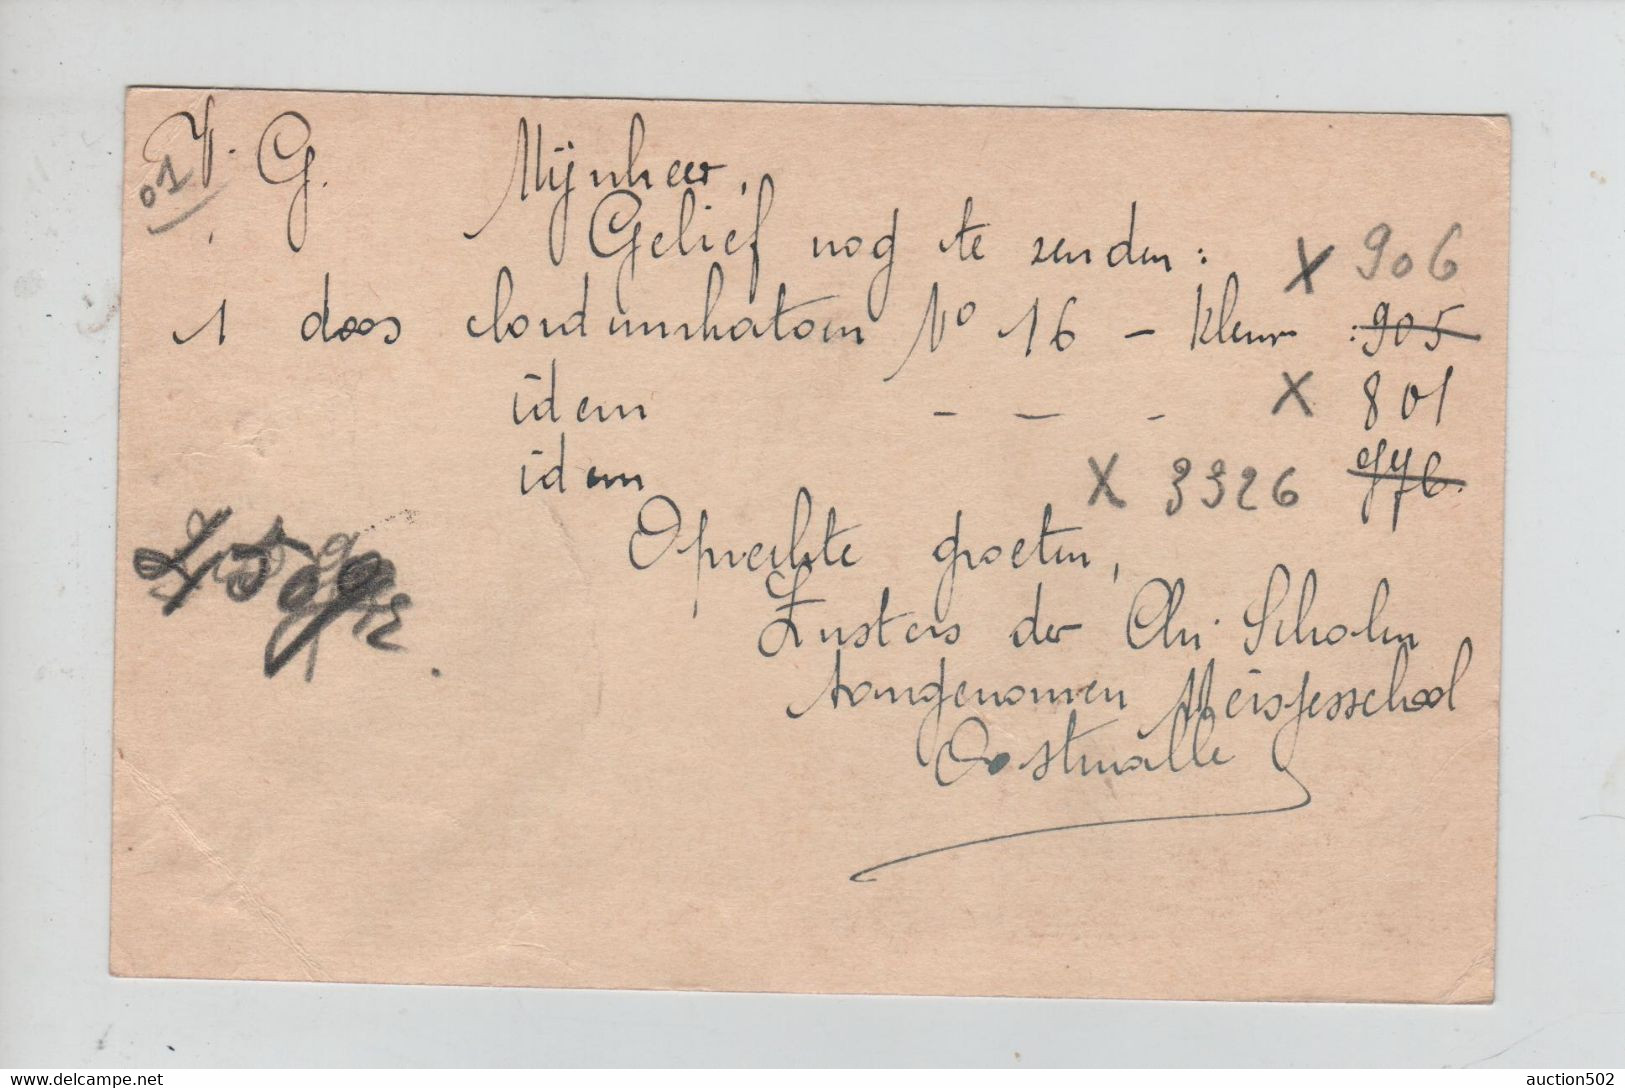 01 V. G.
Mijnheer,
Gelief nog te zenden:
X 906
1 doos Cordonnkatoen No 16 - kleur : 905
idem - - - X 801
idem X 3326 976.
Oprechte groeten,
Zusters der Chr. Scholen
Aangenomen Meisjesschool
Oostmalle
www.delcampe.net
auction502